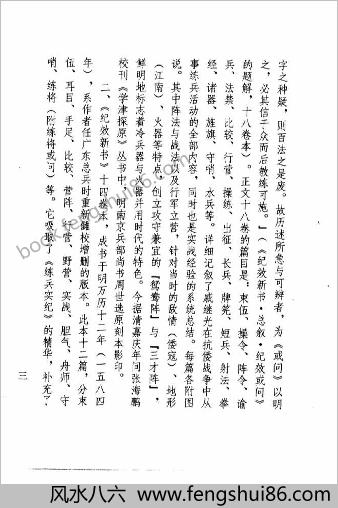 字之种疑，则百法之是废。故历述所意与可辩者，为《或问》以明
之，必其信于众而后教练可施。”（《纪效新书·总叙·纪效或问》
的题解，十八卷本）。正文十八卷的篇目是：束伍、操令、阵令、谕
兵、法禁、比较、行营、操练、出征、长兵、牌筅、短兵、射法、拳
经、诸器、旌旗、守哨、水兵等。详细记叙了戚继光在抗倭战争中从
事练兵活动的全部内容，同时也是实战经验的系统总结。每篇各附图
说。其中阵法与战法以及行军立营，针对当时的敌情（倭寇）、地形
（江南）、火器等特点，创立攻守兼宜的“鸳鸯阵”与“三才阵”，
鲜明地标志着冷兵器与火器并用时代的特色。今据清嘉庆年间张海鹏
校刊《学津探原》丛书中，明南京兵部尚书周世选原刻本影印。
二、《纪效新书》十四卷本，成书于明万历十二年（一五八四
年），系作者任广东总兵时重新雠校增删的版本。此本十二篇，分束
伍、耳目、手足、比较、营阵、行营、野营、实战、胆气、舟师、守
哨、练将（附练将或问）等。它吸取了《练兵实纪》的精华，补充了
三
风水八六 www.fengshui86.com